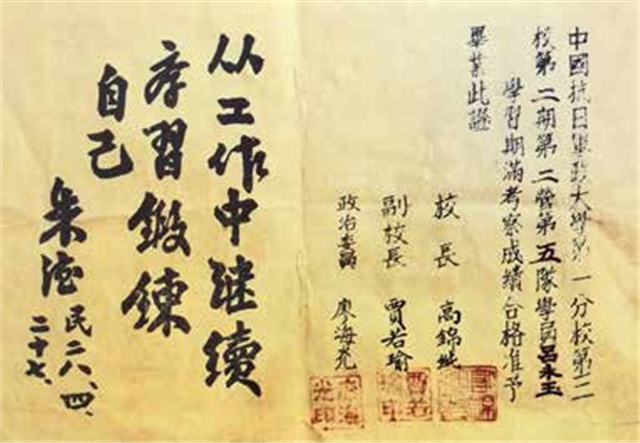 中國抗日軍政大學第一分校第二
校第二期第二營第五隊學員呂永玉
學習期滿考察成績合格准予
畢業此證
校長 高錦純
副校長 賈若瑜
政治委員 廖海光
廖海光印
从工作中继續
学習鍛鍊
自己
朱德 民二八、四、
二十七、